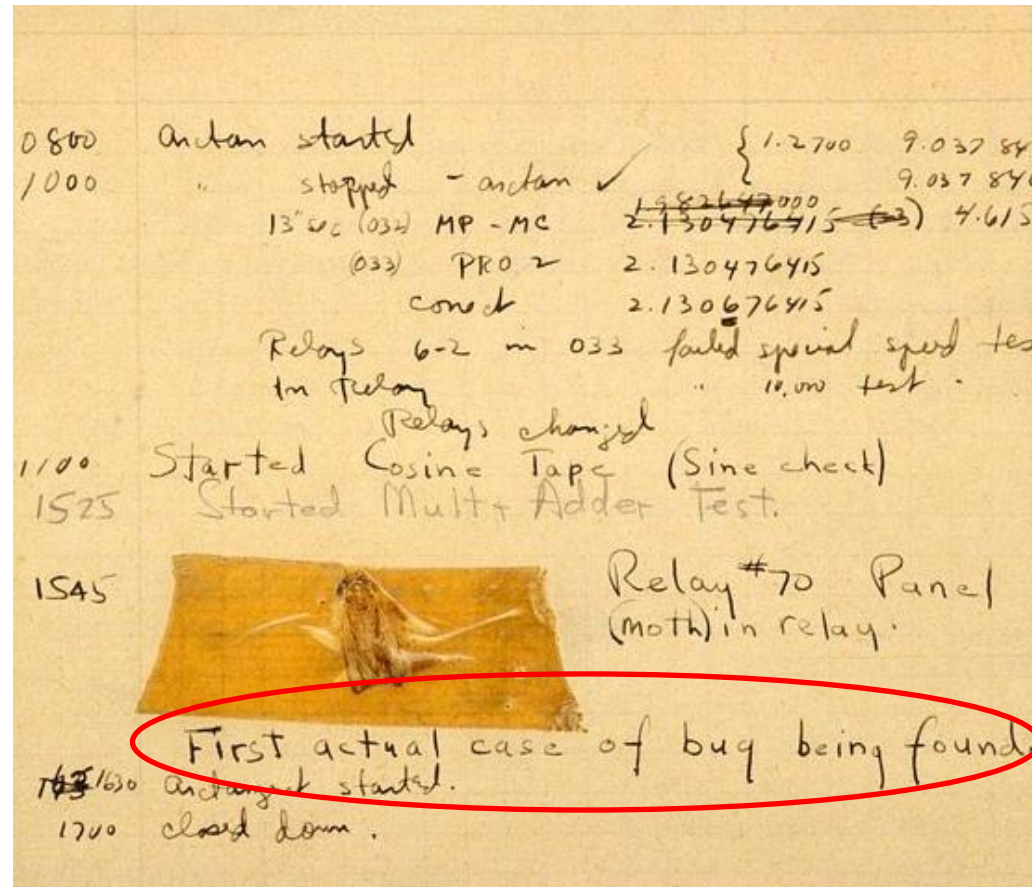 0800 arctan started { 1.2700 9.037 84
1000 " stopped - arctan ✓ 9.037 84
13" sec (032) MP - MC 2.130476415 (-3) 4.615
(033) PRO 2 2.130476415
correct 2.130676415
Relays 6-2 in 033 failed special speed tes
In Relay " 10,000 test .
Relays changed
1100 Started Cosine Tape (Sine check)
1525 Started Mult+ Adder Test.
1545 Relay #70 Panel
(moth) in relay.
First actual case of bug being found.
1630 arctangent started.
1700 closed down .